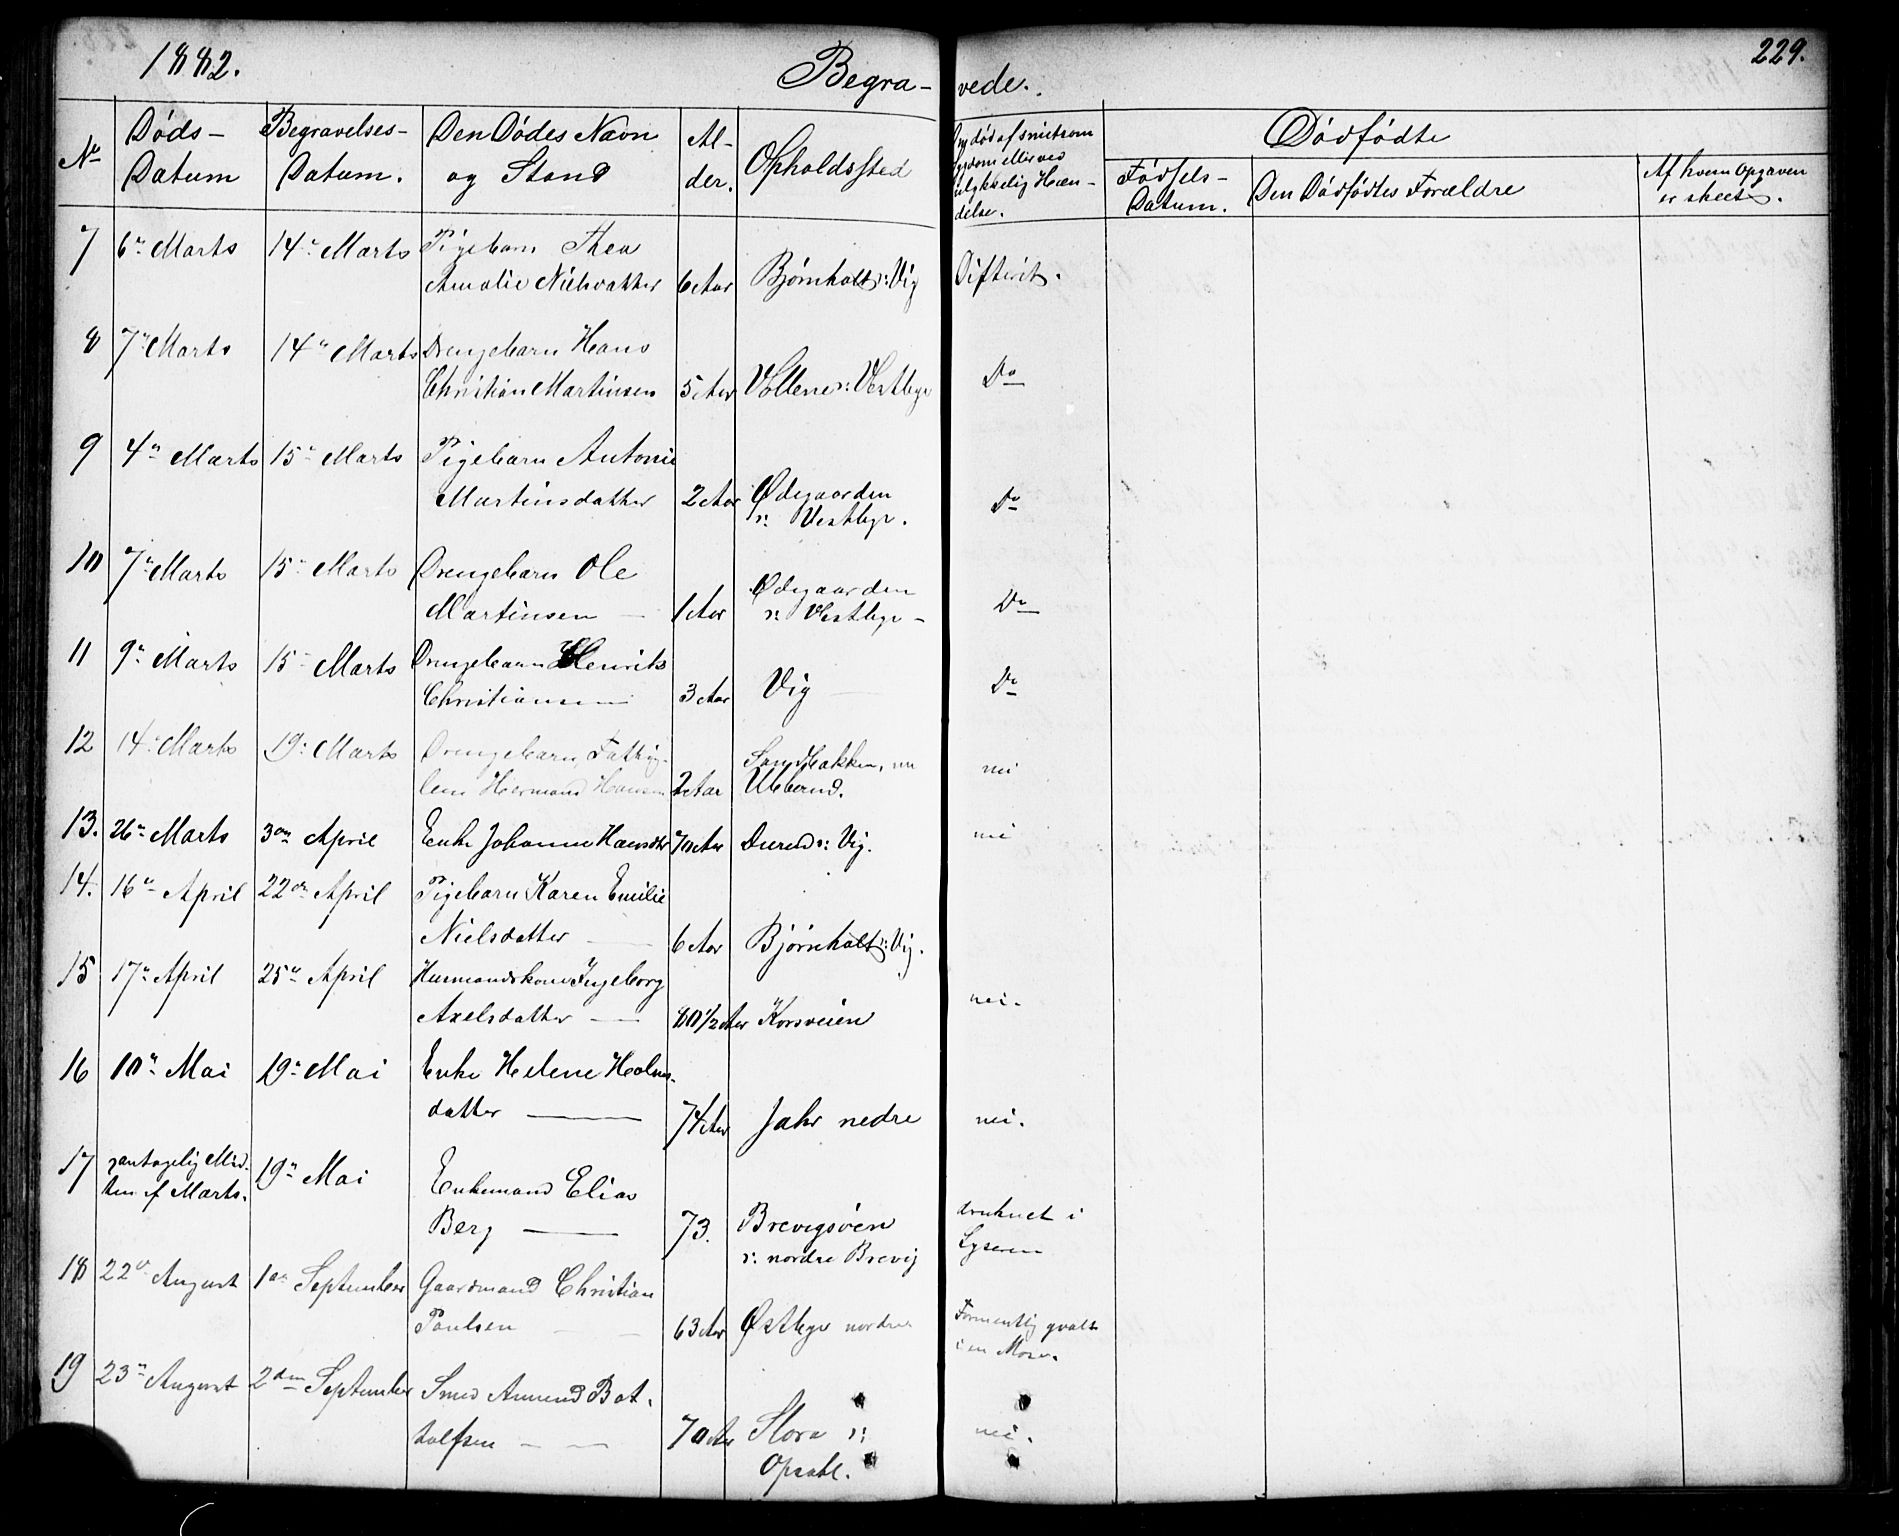 1882.
Begra-
vede.
229.
No
Døds-
Datum
Begravelses-
Datum.
Den Dødes Navn
og Stand
Al-
der.
Opholdssted
Om død af smitsom
Sygdom eller ved
ulykkelig Hæn-
delse.
Dødfødte
Fødsels-
Datum.
Den Dødfødtes Forældre
Af hvem Opgaven
er skeet.
7 6te Marts 14de Marts Pigebarn Thea
Amalie Nielsdatter 6 Aar Bjørnholt v: Vig Difterit.
8 7de Marts 14de Marts Drengebarn Hans
Christian Martinsen 5 Aar Vollene v: Vestbye Do
9 4de Marts 15de Marts Pigebarn Antonie
Martinsdatter 2 Aar Ødegaarden
v: Vestbye. Do
10 7de Marts 15de Marts Drengebarn Ole
Martinsen — 1 Aar Ødegaarden
v: Vestbye - Do
11 9de Marts 15de Marts Drengebarn Henrik
Christiansen 3 Aar Vig — Do
12 14de Marts 19de Marts Drengebarn Fattig-
lem Herman Hansen 2 Aar Sandbakken, nu
Ubberud. nei
13. 26de Marts 3die April Enke Johanne Hansdtr 70 Aar Durud v: Vig. nei
14. 16de April 22de April Pigebarn Karen Emilie
Nielsdatter — 6 Aar Bjørnholt v: Vig.
15 17de April 25de April Husmandskone Ingeborg
Axelsdatter — 80 1/2 Aar Korsveien nei.
16 10de Mai 19de Mai Enke Helene Holms-
datter — 74 Aar Jahr nedre nei.
17 antagelig Mid-
ten af Marts. 19de Mai Enkemand Elias
Berg — 73. Brevigsøen
v: nordre Brevig druknet i
Lyseren
18 22de August 1ste September Gaardmand Christian
Paulsen — 63 Aar Østbye nordre Formentlig qvalt
i en Mose.
19 23de August 2den September Smed Amund Bot-
tolfsen — 70 Aar Stora v:
Opsahl. nei.